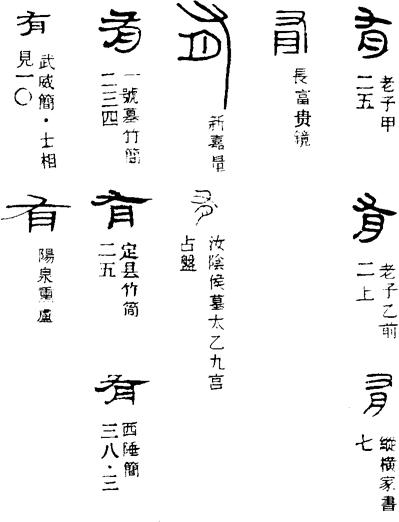 有
老子甲
二五
有
老子乙前
二上
有
縱橫家書
七
有
長富贵镜
有
新嘉量
有
汝陰侯墓太乙九宫
占盤
有
一號墓竹簡
二三四
有
定县竹简
二五
有
西陲簡
三八·三
有
武威簡·士相
見一〇
有
陽泉熏盧